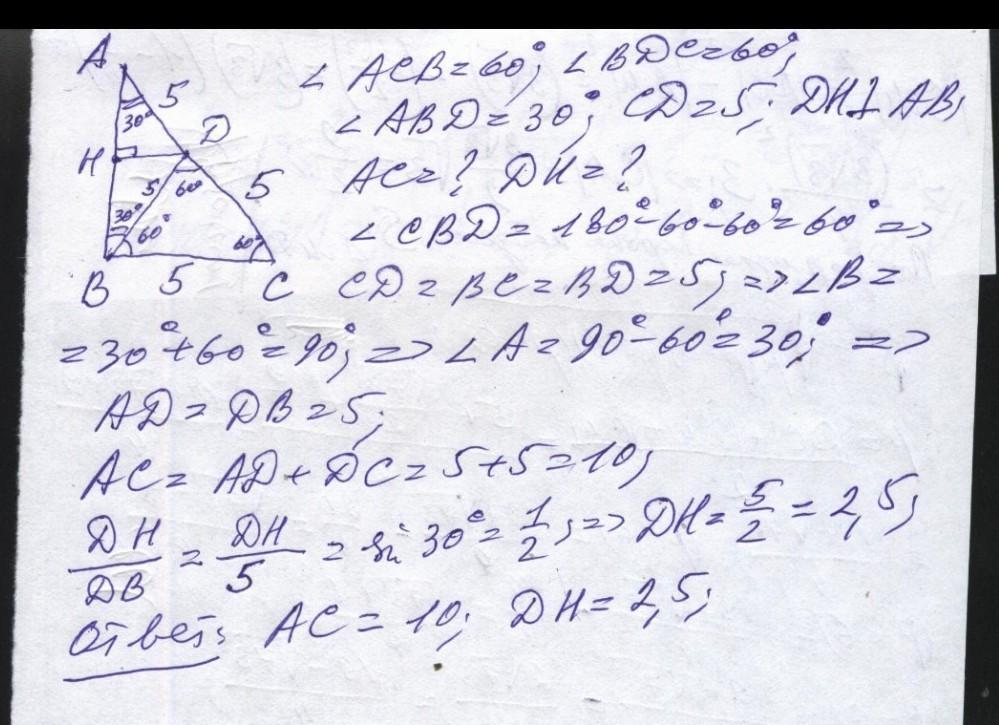 ∠ ACB = 60°; ∠ BDC = 60°;
∠ ABD = 30°; CD = 5; DH ⊥ AB;
AC = ? DH = ?
∠ CBD = 180° - 60° - 60° = 60° =>
CD = BC = BD = 5; => ∠B =
= 30° + 60° = 90°; => ∠ A = 90° - 60° = 30°; =>
AD = DB = 5;
AC = AD + DC = 5 + 5 = 10;
DH/DB = DH/5 = sin 30° = 1/2; => DH = 5/2 = 2,5;
Ответ: AC = 10; DH = 2,5;
A
5
30°
D
H
5 60° 5
30°
60° 60°
B 5 C